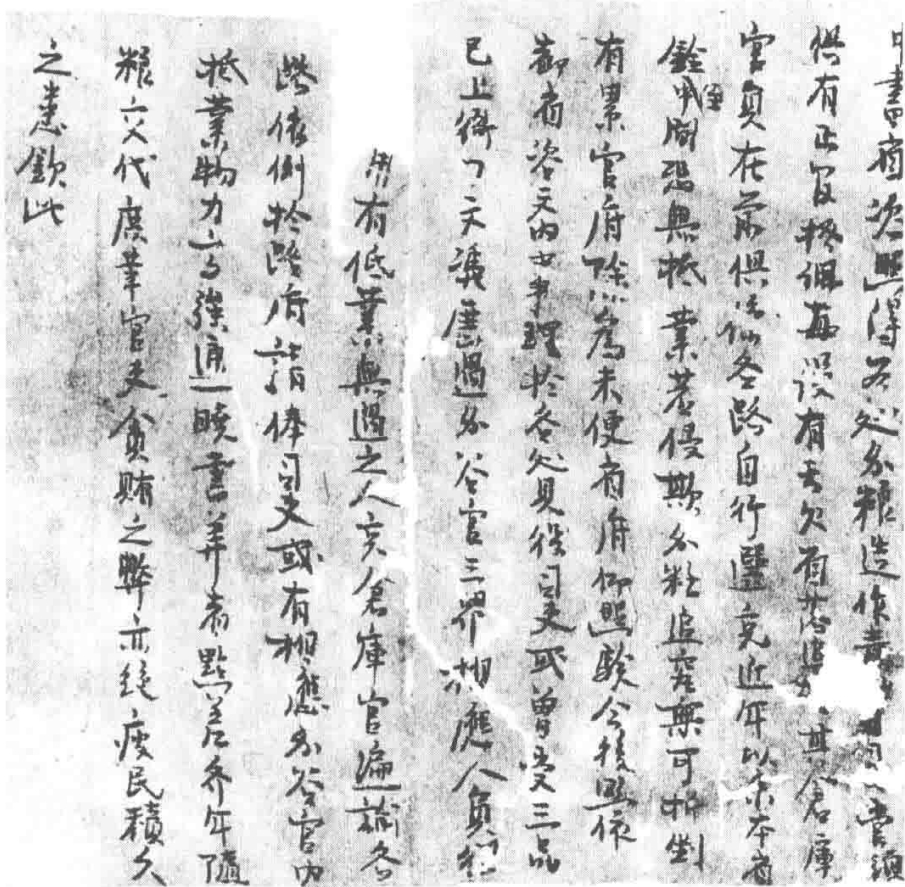 中書省咨照得各处夛粮造作責管領
俱有正官提調設有失欠省追其倉庫
官員在前俱係各路自行選充近年以来本省
銓甲閘恐無抵業若侵欺夛粮追究無可折剉
有累官府除以為未便省府仰照驗今後照依
都省咨文内事理於各处見役司吏或曾受三品
已上衙门文憑歷過夛谷官三界相應人員
用有低業無過之人充倉庫官遍諭各
路依例於路府請俸司吏或有相應夛谷官内
抵業物力高強通曉書算者點差各年隨
粮交代庶革官吏貪賄之弊亦絶民積久
之患欽此